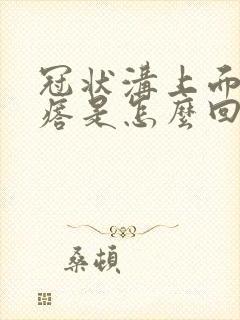 冠狀溝上而
痞是怎麼回
桑頓